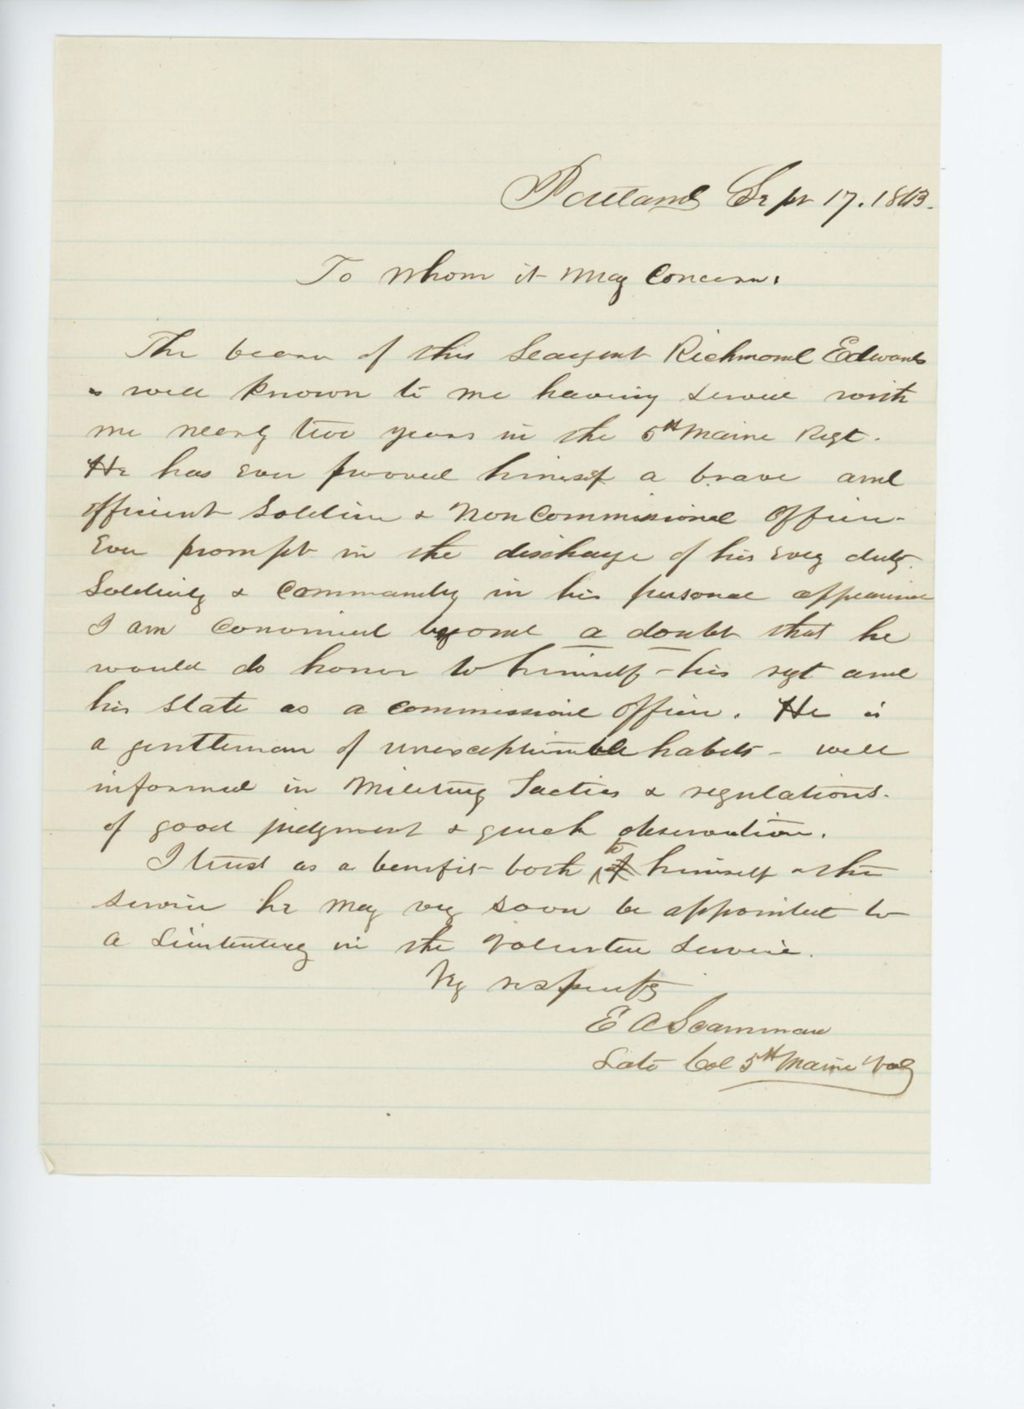 Portland Sept 17. 1863.
To Whom it May Concern:
The bearer of this Seargent Richmond Edwards
is well known to me having served with
me nearly two years in the 5th Maine Regt.
He has ever prooved himself a brave and
efficient Soldier & Non Commissioned Officer-
Ever prompt in the discharge of his every duty.
Soldierly & Commanding in his personal appearance
I am convinced beyond a doubt that he
would do honor to himself - his rgt and
his State as a commissioned officer. He is
a gentleman of unexceptionable habits - well
informed in Military Tactics & regulations.
of good judgment & quick observation.
I trust as a benefit both to himself & the
service he may very soon be appointed to
a Lieutenancy in the Volunteer Service.
Vry respectfy
E A Scamman
Late Col 5th Maine Vols